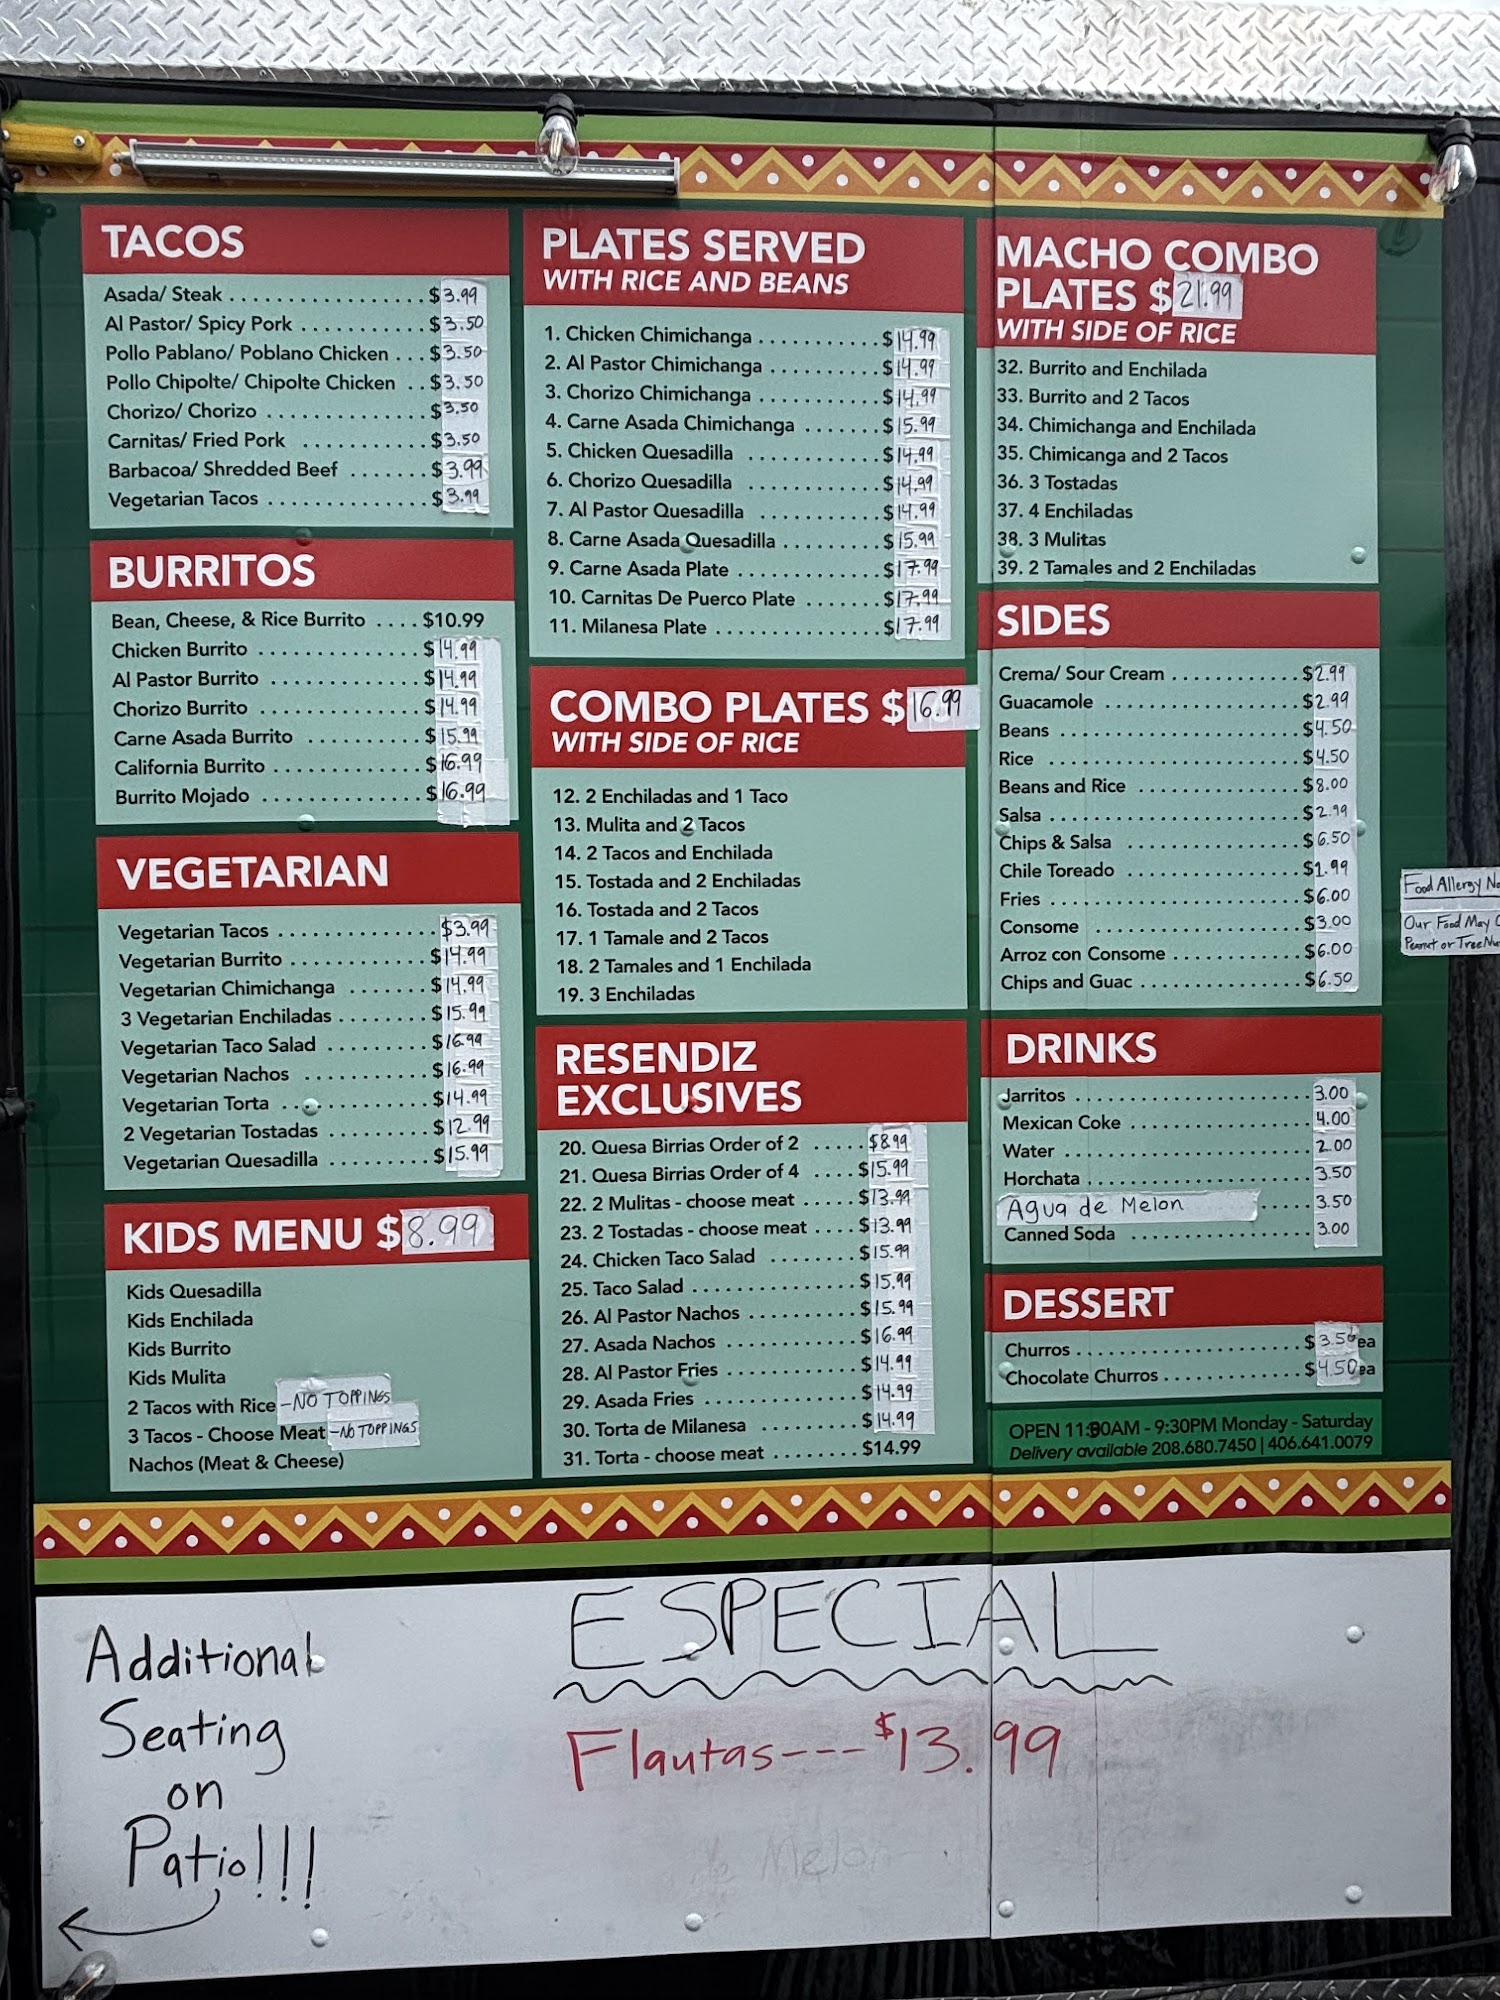 TACOS
Asada/ Steak . . . . . . . . . . . . . . . . . $3.99
Al Pastor/ Spicy Pork . . . . . . . . . . $3.50
Pollo Pablano/ Poblano Chicken . . . $3.50
Pollo Chipolte/ Chipolte Chicken . . $3.50
Chorizo/ Chorizo . . . . . . . . . . . . . $3.50
Carnitas/ Fried Pork . . . . . . . . . . $3.50
Barbacoa/ Shredded Beef . . . . . . . $3.99
Vegetarian Tacos . . . . . . . . . . . . . $3.99
BURRITOS
Bean, Cheese, & Rice Burrito . . . . $10.99
Chicken Burrito . . . . . . . . . . . . . $14.99
Al Pastor Burrito . . . . . . . . . . . . $14.99
Chorizo Burrito . . . . . . . . . . . . . $14.99
Carne Asada Burrito . . . . . . . . . . $15.99
California Burrito . . . . . . . . . . . . $16.99
Burrito Mojado . . . . . . . . . . . . . $16.99
VEGETARIAN
Vegetarian Tacos . . . . . . . . . . . . . $3.99
Vegetarian Burrito . . . . . . . . . . . $14.99
Vegetarian Chimichanga . . . . . . . $14.99
3 Vegetarian Enchiladas . . . . . . . . $15.99
Vegetarian Taco Salad . . . . . . . . . $16.99
Vegetarian Nachos . . . . . . . . . . . $16.99
Vegetarian Torta . . . . . . . . . . . . . $14.99
2 Vegetarian Tostadas . . . . . . . . . $12.99
Vegetarian Quesadilla . . . . . . . . . $15.99
KIDS MENU $8.99
Kids Quesadilla
Kids Enchilada
Kids Burrito
Kids Mulita
2 Tacos with Rice -NO TOPPINGS
3 Tacos - Choose Meat -NO TOPPINGS
Nachos (Meat & Cheese)
PLATES SERVED
WITH RICE AND BEANS
1. Chicken Chimichanga . . . . . . . . . . . $14.99
2. Al Pastor Chimichanga . . . . . . . . . . $14.99
3. Chorizo Chimichanga . . . . . . . . . . . $14.99
4. Carne Asada Chimichanga . . . . . . . $15.99
5. Chicken Quesadilla . . . . . . . . . . . . $14.99
6. Chorizo Quesadilla . . . . . . . . . . . . $14.99
7. Al Pastor Quesadilla . . . . . . . . . . . $14.99
8. Carne Asada Quesadilla . . . . . . . . . $15.99
9. Carne Asada Plate . . . . . . . . . . . . . $17.99
10. Carnitas De Puerco Plate . . . . . . . $17.99
11. Milanesa Plate . . . . . . . . . . . . . . . $17.99
COMBO PLATES $16.99
WITH SIDE OF RICE
12. 2 Enchiladas and 1 Taco
13. Mulita and 2 Tacos
14. 2 Tacos and Enchilada
15. Tostada and 2 Enchiladas
16. Tostada and 2 Tacos
17. 1 Tamale and 2 Tacos
18. 2 Tamales and 1 Enchilada
19. 3 Enchiladas
RESENDIZ
EXCLUSIVES
20. Quesa Birrias Order of 2 . . . . . $8.99
21. Quesa Birrias Order of 4 . . . . $15.99
22. 2 Mulitas - choose meat . . . . . $13.99
23. 2 Tostadas - choose meat . . . . $13.99
24. Chicken Taco Salad . . . . . . . $15.99
25. Taco Salad . . . . . . . . . . . . . . . $15.99
26. Al Pastor Nachos . . . . . . . . . . $15.99
27. Asada Nachos . . . . . . . . . . . . $16.99
28. Al Pastor Fries . . . . . . . . . . . . $14.99
29. Asada Fries . . . . . . . . . . . . . . $14.99
30. Torta de Milanesa . . . . . . . . $14.99
31. Torta - choose meat . . . . . . . . $14.99
MACHO COMBO
PLATES $21.99
WITH SIDE OF RICE
32. Burrito and Enchilada
33. Burrito and 2 Tacos
34. Chimichanga and Enchilada
35. Chimicanga and 2 Tacos
36. 3 Tostadas
37. 4 Enchiladas
38. 3 Mulitas
39. 2 Tamales and 2 Enchiladas
SIDES
Crema/ Sour Cream . . . . . . . . . . . . $2.99
Guacamole . . . . . . . . . . . . . . . . . . $2.99
Beans . . . . . . . . . . . . . . . . . . . . . . $4.50
Rice . . . . . . . . . . . . . . . . . . . . . . . $4.50
Beans and Rice . . . . . . . . . . . . . . . $8.00
Salsa . . . . . . . . . . . . . . . . . . . . . . . $2.99
Chips & Salsa . . . . . . . . . . . . . . . . $6.50
Chile Toreado . . . . . . . . . . . . . . . . $1.99
Fries . . . . . . . . . . . . . . . . . . . . . . . $6.00
Consome . . . . . . . . . . . . . . . . . . . $3.00
Arroz con Consome . . . . . . . . . . . . $6.00
Chips and Guac . . . . . . . . . . . . . . . $6.50
DRINKS
Jarritos . . . . . . . . . . . . . . . . . . . . . 3.00
Mexican Coke . . . . . . . . . . . . . . . . 4.00
Water . . . . . . . . . . . . . . . . . . . . . . 2.00
Horchata . . . . . . . . . . . . . . . . . . . . 3.50
Agua de Melon . . . . . 3.50
Canned Soda . . . . . . . . . . . . . . . . 3.00
DESSERT
Churros . . . . . . . . . . . . . . . . . . . . $3.50ea
Chocolate Churros . . . . . . . . . . . . $4.50ea
OPEN 11:30AM - 9:30PM Monday - Saturday
Delivery available 208.680.7450 | 406.641.0079
Food Allergy
Our Food May
Peanut or Tree
Additional
Seating
on
Patio!!!
ESPECIAL
Flautas--- $13.99
Melon